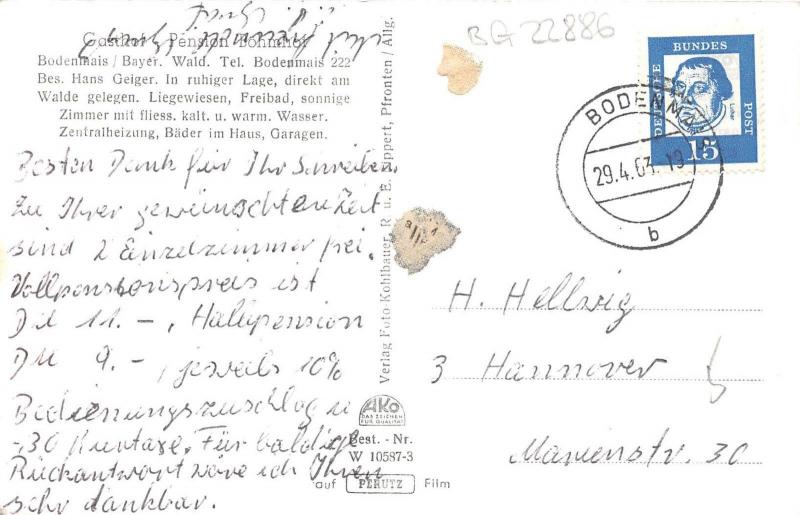 Gasthof - Pension Böhmhof
Bodenmais / Bayer. Wald. Tel. Bodenmais 222
Bes. Hans Geiger. In ruhiger Lage, direkt am
Walde gelegen. Liegewiesen, Freibad, sonnige
Zimmer mit fliess. kalt. u. warm. Wasser.
Zentralheizung, Bäder im Haus, Garagen.
Besten Dank für Ihr Schreiben.
Zu Ihrer gewünschten Zeit
sind 2 Einzelzimmer frei.
Vollpensionspreis ist
DM 11.-, Halbpension
DM 9.-, jeweils 10%
Bedienungszuschlag u
-.30 Kurtaxe. Für baldige
Rückantwort wäre ich Ihnen
sehr dankbar.
Verlag Foto-Kohlbauer, R. u. E. Lippert, Pfronten / Allg.
AKO
DAS ZEICHEN
FÜR QUALITÄT
Best. - Nr.
W 10587-3
auf PERUTZ Film
BG 22886
DEUTSCHE BUNDES POST
Luther
15
BODENMAIS
29.4.63.-19
b
H. Hellwig
3 Hannover
Marienstr. 30